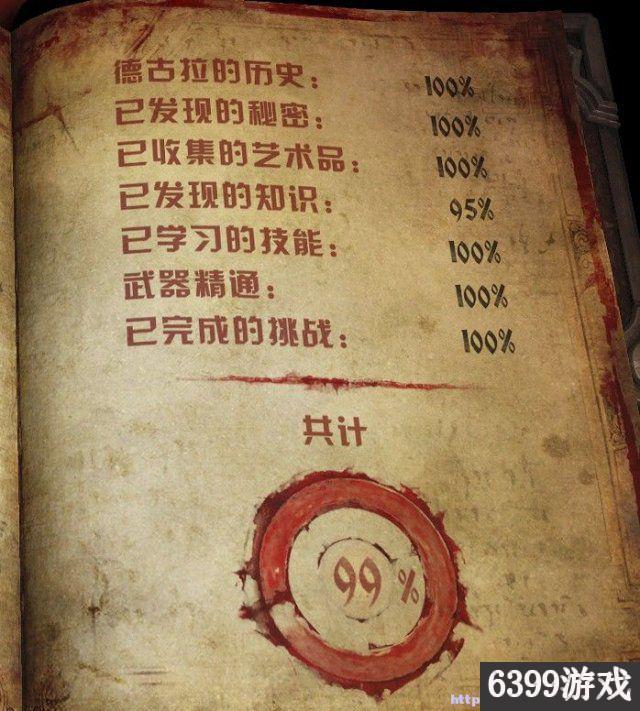 德古拉的历史： 100%
已发现的秘密： 100%
已收集的艺术品： 100%
已发现的知识： 95%
已学习的技能： 100%
武器精通： 100%
已完成的挑战： 100%
共计
99 %
6399游戏
http